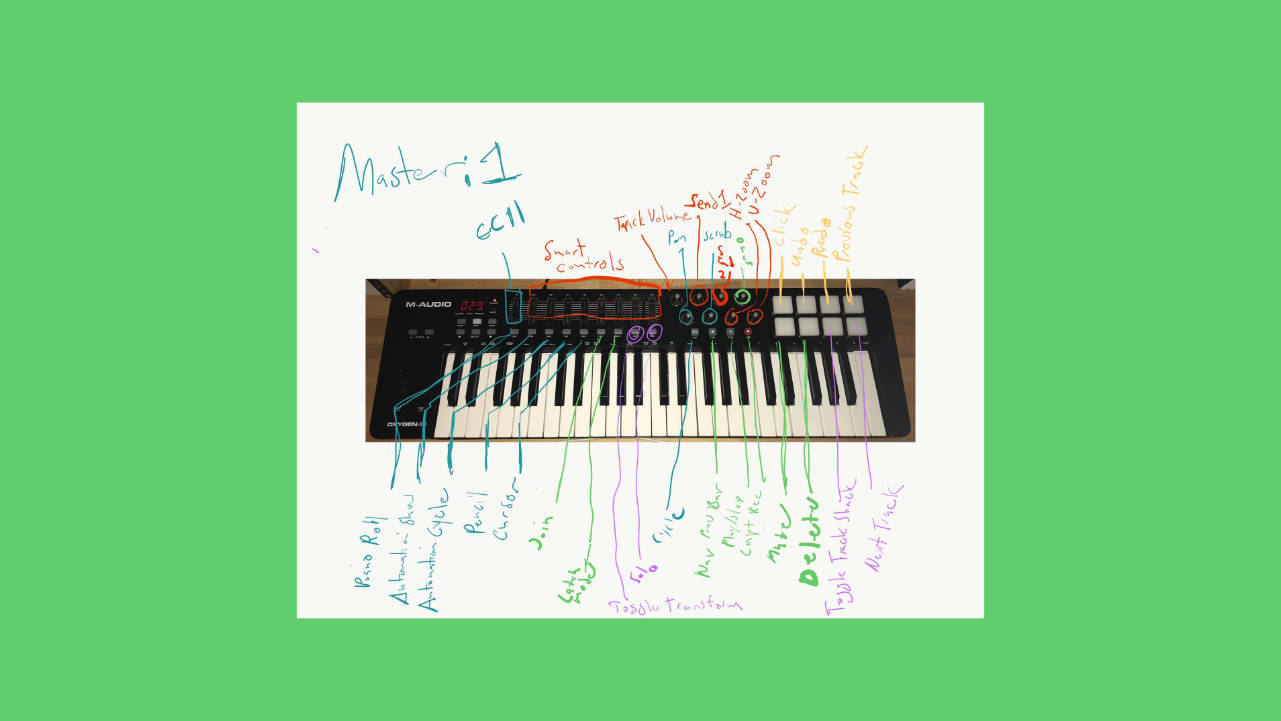 Master: 1
CC11
Smart
controls
Track Volume
Pan
Send 1
Scrub
H-Zoom
V-Zoom
Click
Undo
Redo
Previous Track
M-AUDIO
029
Piano Roll
Automation Show
Automation Cycle
Pencil
Cursor
Join
Latch
mode
Toggle Transform
Solo
Cycle
Nav Prev Bar
Play/Stop
Capt Rec
Mute
Delete
Toggle Track Stack
Next Track